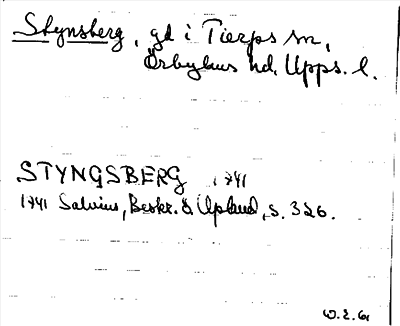 Styngsberg, gd i Tierps sn,
Örbyhus hd, Upps. l.
STYNGSBERG 1741
1741 Salvius, Beskr. ö Upland, s. 326.